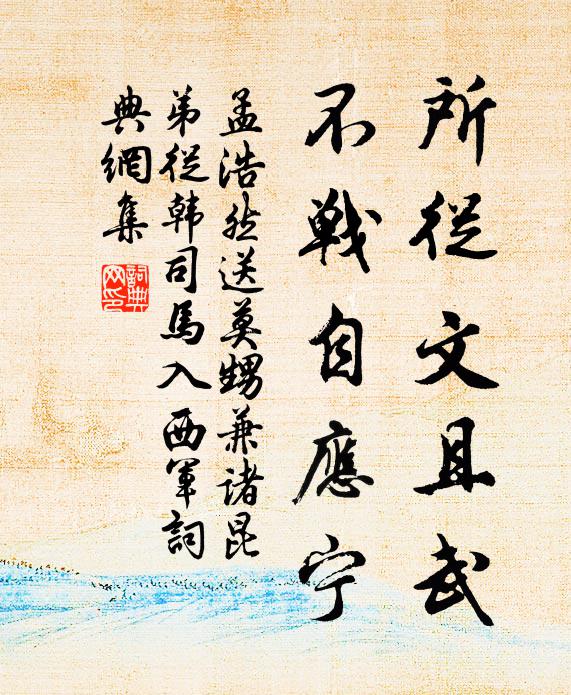 所從文且武
不戰自應宁
孟浩然送莫甥兼诸昆
弟從韩司馬入西軍詞
典網集
詞典
网印